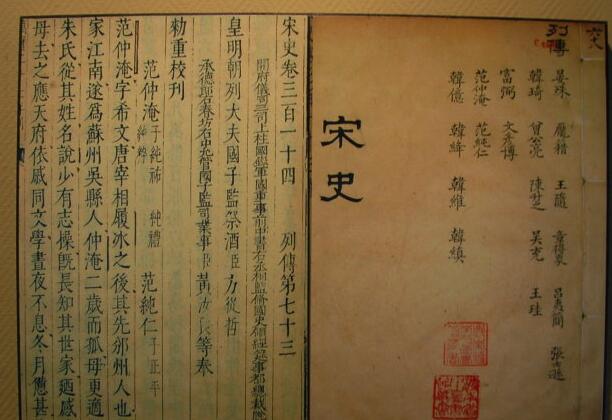 六八
列傳
晏殊 龐籍 王隨 章得象 呂夷簡 張士遜
韓琦 曾公亮 陳升之 吳充 王珪
富弼 文彥博
范仲淹 范純仁
韓億 韓絳 韓維 韓縝
宋史
宋史卷三百一十四 列傳第七十三
開府儀同三司上柱國錄軍國重事前中書右丞相監修國史領經筵事都總裁臣
皇明朝列大夫國子監祭酒臣方從哲
承德郎右春坊右中允管國子監司業事臣黃汝良等奉
勑重校刊
范仲淹 子純祐 純禮 純粹 范純仁 子正平
范仲淹字希文唐宰相履冰之後其先邠州人也
家江南遂爲蘇州吳縣人仲淹二歲而孤母更適
朱氏從其姓名說少有志操既長知其世家廼感
母去之應天府依戚同文學晝夜不息冬月憊甚